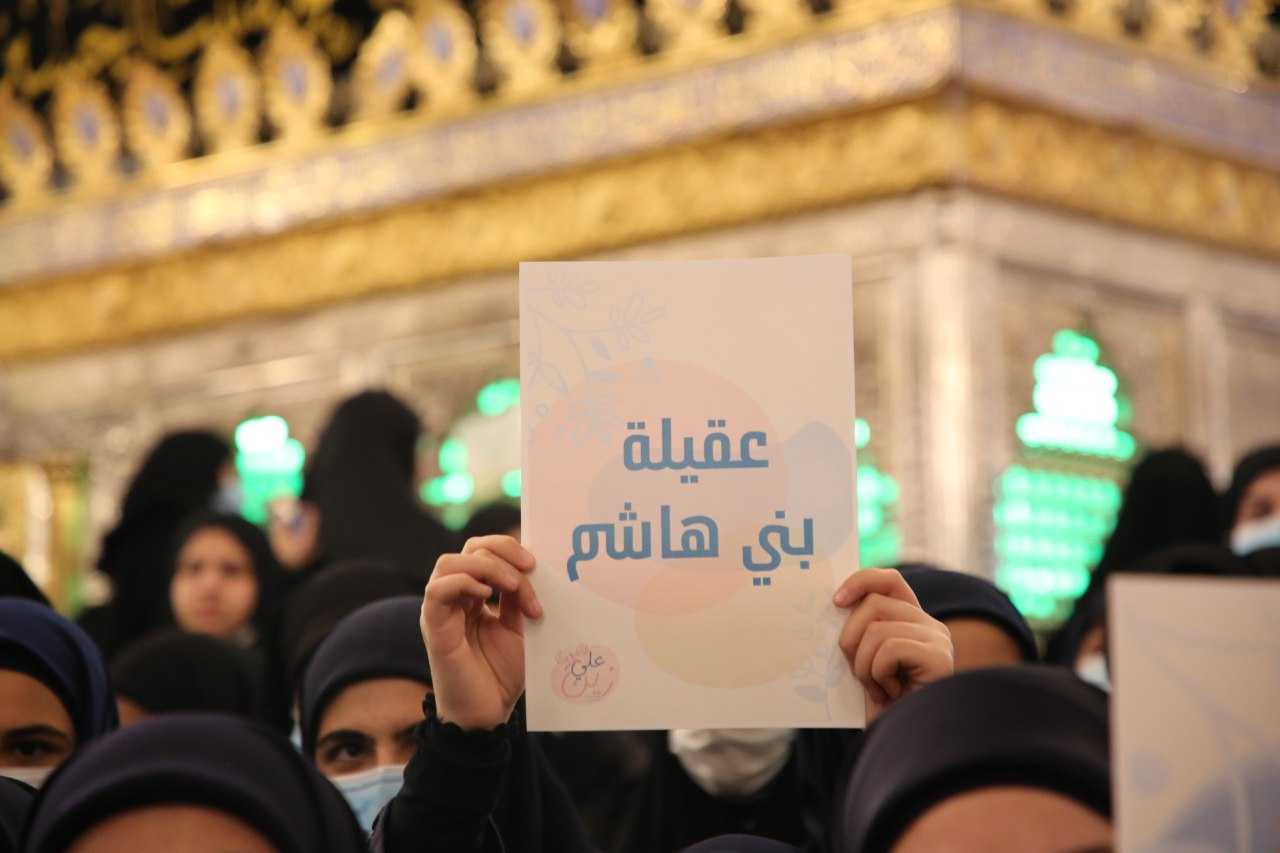 عقيلة
بني هاشم
علي